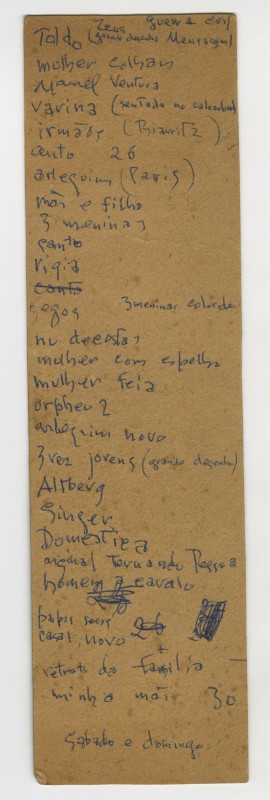 Zeus guerra civil
Toldo (grande desenho Mensagem)
mulher colhan
Manuel Ventura
varina (sentada no calcanhar)
irmãos (Biarritz)
cento 26
arlequim (Paris)
mãe e filho
3 meninas
santo
vigia
santo
cegos 3 meninas coloridas
nu de costas
mulher com espelho
mulher feia
orpheu 2
arlequim novo
3 vez jovens (grande desenho)
Altberg
Singer
Domestica
animal Fernando Pessoa
homem a cavalo
casal novo 26
retrato da familia
minha mãe 30
Sabado e domingo